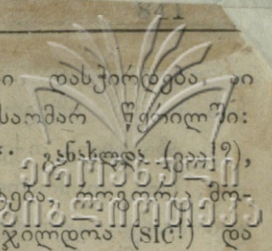 841
ი დასჭირდება, აი
საომარ წერილში:
განახლდა (ვაა!?),
ტება, როგორც მო-
გილდოა (SIC!) და
ეროვნული
ბიბლიოთეკა